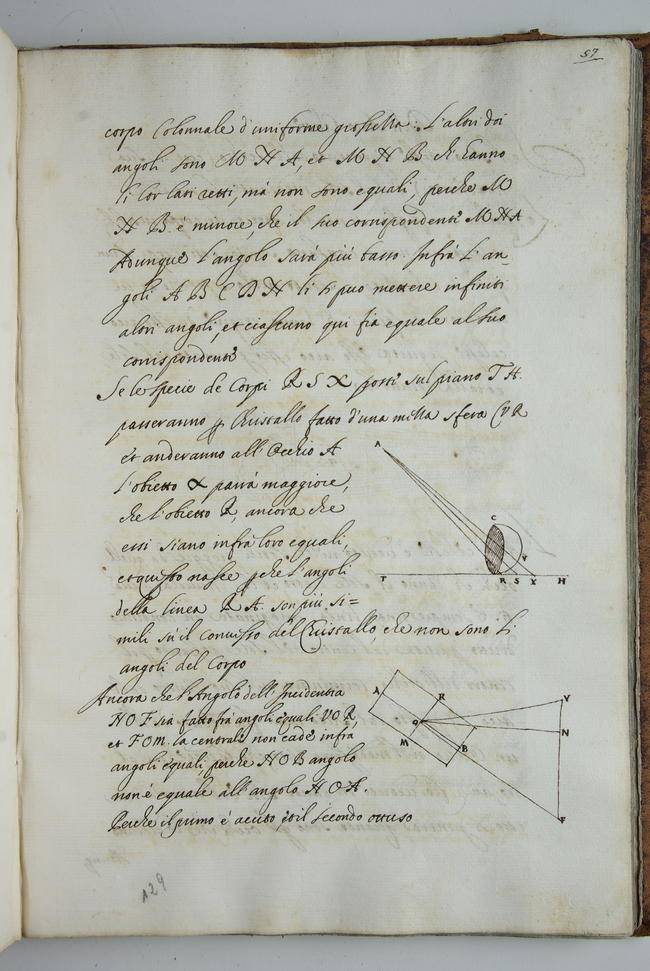 57
corpo Colonnale d'uniforme grossezza: L'altri doi
angoli sono M H A, et M H B ch'hanno
li lor lati retti, mà non sono equali, perche M
H B. è minore, che il suo corrispondente M H A
Adunque l'angolo sarà più basso. Infrà L'an-
goli A B C D H li si può mettere infiniti
altri angoli, et ciascuno qui fia equale al suo
corrispondente
Se le specie de Corpi R S X posti sul piano T H.
passeranno Christallo fatto d'una mezza sfera C V R
et anderanno all'Occhio A
l'obietto X parrà maggiore,
che l'obietto R, ancora che
essi siano infrà loro equali
et questo nasce perche l'angoli
della linea R A. son più si=
mili sù il convesso del Christallo, che non sono li
angoli del Corpo
Ancora che l'Angolo dell'Incidentia
H O F sia fatto frà angoli equali V O R,
et F O M. la centrale non cade infrà
angoli equali, perche H O B angolo
non è equale all'angolo H O A.
Perche il primo è acuto, et il secondo ottuso
A
C
V
T
R S X
H
A
R
V
O
N
M
B
F
129